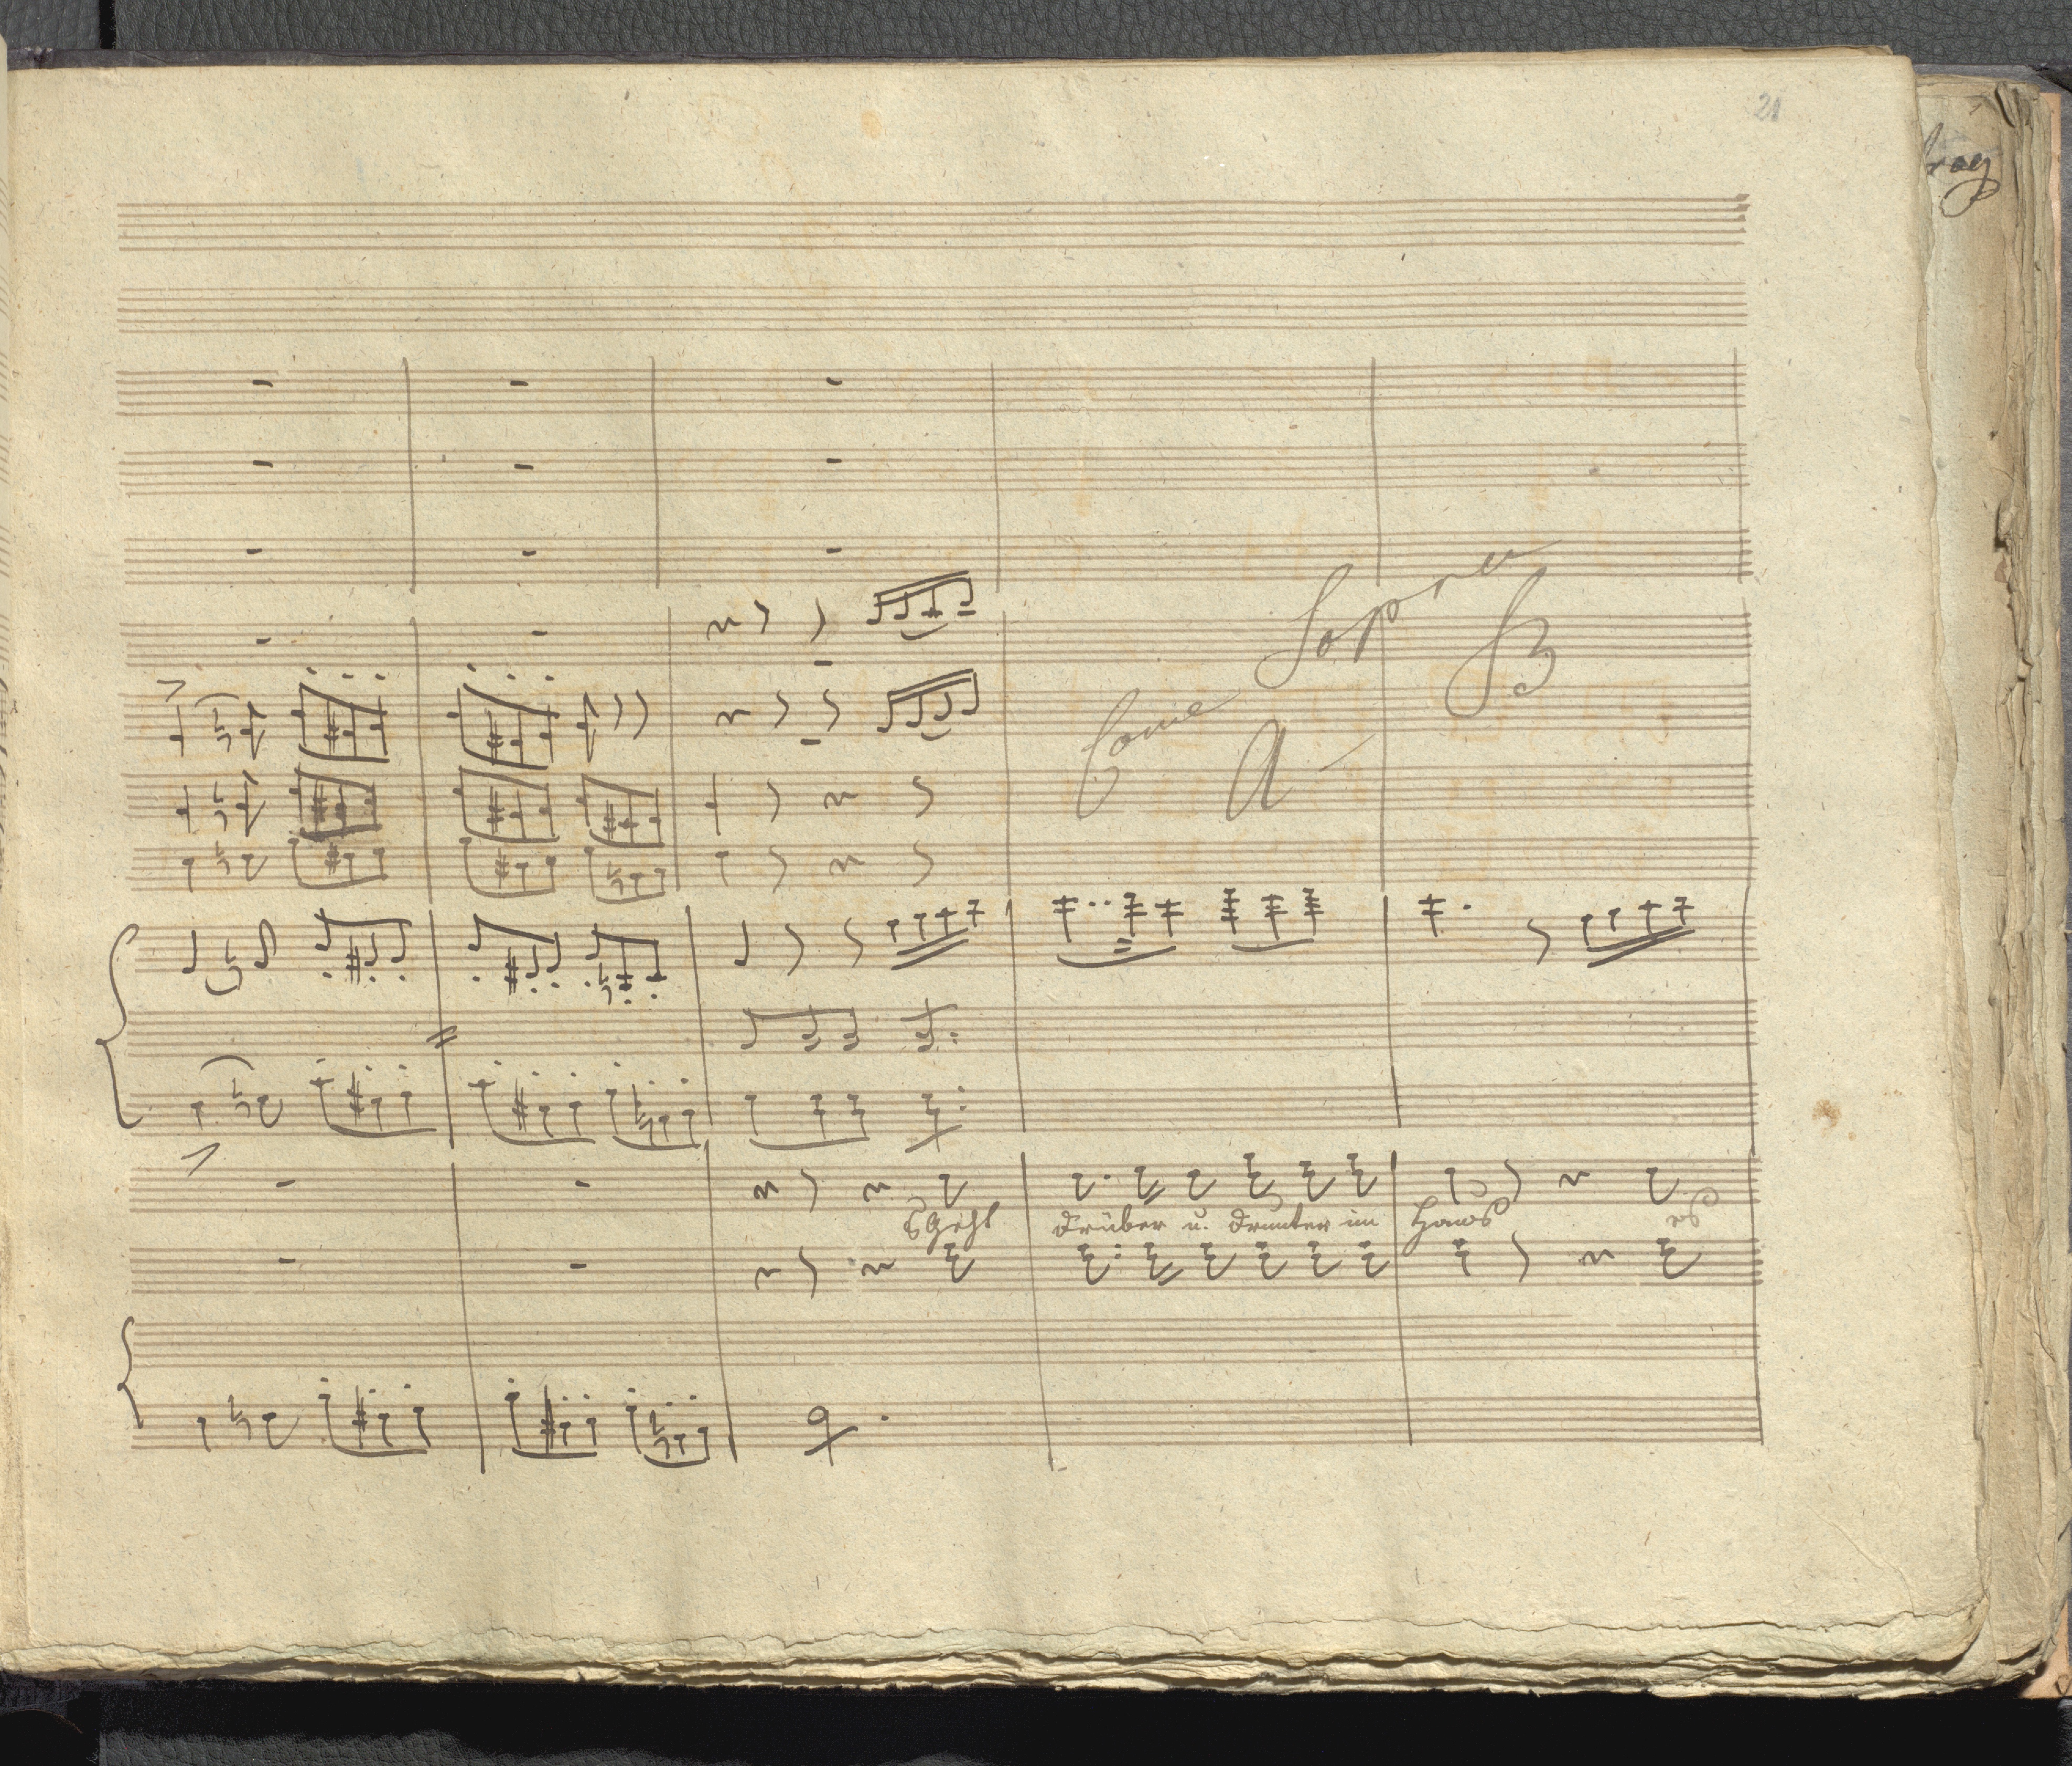 21
Come Sopra
A B
s'Geht drüber u. drunter im Haus es